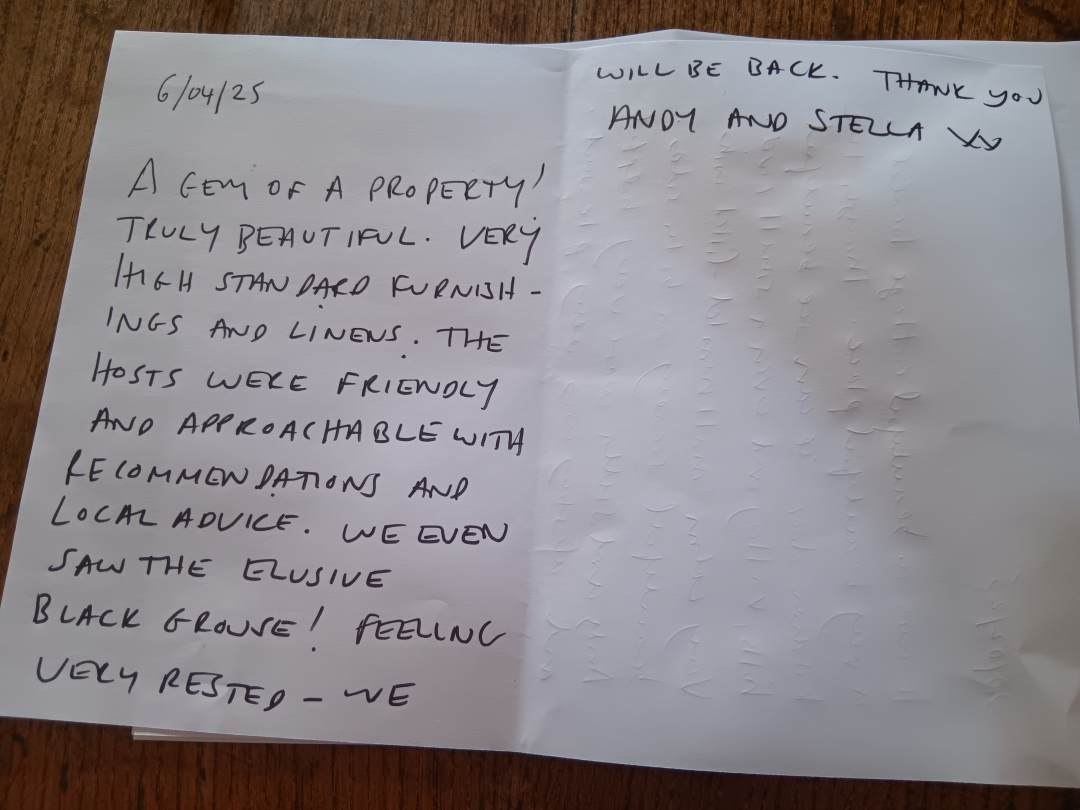 6/04/25
A GEM OF A PROPERTY!
TRULY BEAUTIFUL. VERY
HIGH STANDARD FURNISH-
INGS AND LINENS. THE
HOSTS WERE FRIENDLY
AND APPROACHABLE WITH
RECOMMENDATIONS AND
LOCAL ADVICE. WE EVEN
SAW THE ELUSIVE
BLACK GROUSE! FEELING
VERY RESTED - WE
WILL BE BACK. THANK YOU
ANDY AND STELLA XX